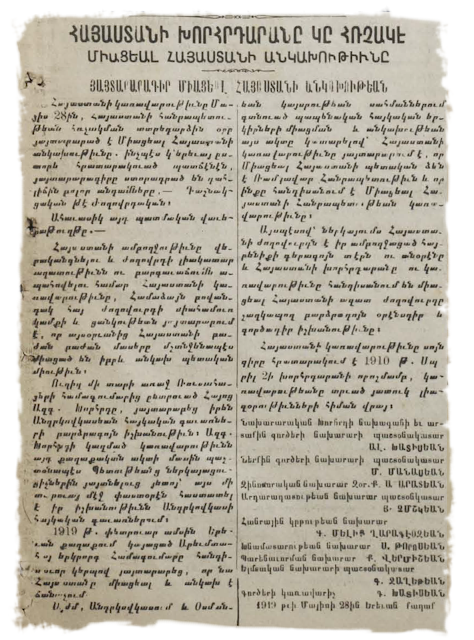 ՀԱՅԱՍՏԱՆԻ ԽՈՐՀՐԴԱՐԱՆԸ ԿԸ ՀՌՉԱԿԷ
ՄԻԱՑԵԱԼ ՀԱՅԱՍՏԱՆԻ ԱՆԿԱԽՈՒԹԻՒՆԸ
ՅԱՅՏԱՐԱՐԱԳԻՐ ՄԻԱՑԵԱԼ ՀԱՅԱՍՏԱՆԻ ԱՆԿԱԽՈՒԹԵԱՆ
Հայաստանի կառավարութիւնը Մա-
յիս 28ին, Հայաստանի Հանրապետու-
թեան հռչակման տարեդարձին օրը
յայտարարած է Միացեալ Հայաստանի
անկախութիւնը. ինչպէս կ՚երեւայ
յայտարարագիրը ստորագրած են դահ-
լիճին բոլոր անդամները,— Դաշնակ-
ցական թէ ժողովրդական։
Ահաւասիկ այդ պատմական վաւե-
րաթուղթը.—
Հայաստանի ամբողջութիւնը վե-
րականգնելու եւ ժողովրդի լիակատար
ազատութիւնն ու բարգաւաճումն ա-
պահովելու համար Հայաստանի կա-
ռավարութիւնը, Համաձայն բովան-
դակ Հայ ժողովրդի միահամուռ
կամքի եւ ցանկութեան յայտարարում
է, որ այսօրուանից Հայաստանի բա-
ժան բաժան մասերը մշտնջենապէս
միացած են իբրեւ անկախ պետական
միութիւն։
Ուղիղ մի տարի առաջ Ռուսահա-
յերի համագումարից ընտրուած Հայոց
Ազգ. Խորհրդը, յայտարարեց իրեն
Անդրկովկասեան Հայկական գաւառնե-
րի բարձրագոյն իշխանութիւն։ Ազգ.
Խորհրդի կազմած կառավարութիւնն
այդ քաղաքական ակտի մասին պաշ-
տօնապէս Պետութեանց ներկայացու-
ցիչներին յայտնելուց յետոյ՝ այս մի
տարուայ մէջ փաստօրէն հաստատել
է իր իշխանութիւնն Անդրկովկասի
Հայկական գաւառներում։
1919 թ. փետրուար ամսին Երե-
ւան քաղաքում կայացած Արեւմտա-
Հայ Երկրորդ Համագումարը հանդի-
սաւոր կերպով յայտարարեց, որ նա
Հայաստանը միացեալ եւ անկախ է
ճանաչում
Այժմ, Անդրկովկասում եւ Օսման-
եան կայսրութեան սահմաններում
գտնուած պապենական Հայկական եր-
կիրների միացման եւ անկախութեան
այս ակտը կատարելով՝ Հայաստանի
կառավարութիւնը յայտարարում է, որ
Միացեալ Հայաստանի պետական ձեւն
է Ռամկավար Հանրապետութիւն եւ որ
ինքը հանդիսանում է Միացեալ Հա-
յաստանի Հանրապետութեան կառա-
վարութիւնը։
Այսպէսով՝ ներկայումս Հայաստա-
նի ժողովուրդն է իր ամբողջացած հայ-
րենիքի գերագոյն տէրն ու անօրէնը
եւ Հայաստանի խորհրդարանը ու կա-
ռավարութիւնը հանդիսանում են միա-
ցեալ Հայաստանի ազատ ժողովուրդը
շաղկապող բարձրագոյն օրէնսդիր եւ
գործադիր իշխանութիւնը։
Հայաստանի կառավարութիւնը սոյն
գիրը հրատարակում է 1910 թ. Ապ
րիլ 2ի խորհրդարանի որոշմամբ, կա-
ռավարութեանը տրուած յատուկ լիա-
զօրութիւնների հիման վրայ։
Նախարարական Խորհրդի նախագահի եւ ար-
տաքին գործերի նախարարի պաշտօնակատար
ԱԼ. ԽԱՏԻՍԵԱՆ
Ներքին գործերի նախարարի պաշտօնակատար
Մ. ՄԱՆԱՍԵԱՆ
Զինուորական նախարար Զօր. Ք. Ա ԱՐԱՏԵԱՆ
Արդարադատութեան նախարար պաշտօնակատար
Յ. ՉՄՇԿԵԱՆ
Հանրային կրթութեան նախարար
Գ. ՄԵԼԻՔ ՂԱՐԱԳԷՕԶԵԱՆ
Խնամատարութեան նախարար Ս. ԹՈՐՈՍԵԱՆ
Պարենաւորման նախարար Ք. ՎԵՐՄԻՇԵԱՆ
Ելմտական նախարարի պաշտօնակատար
Գ. ՋԱՂԵԹԵԱՆ
Գործերի կառավարիչ Գ. ԽԱՏԻՍԵԱՆ
1919 թուի Մայիսի 28ին Երեւան քաղաք